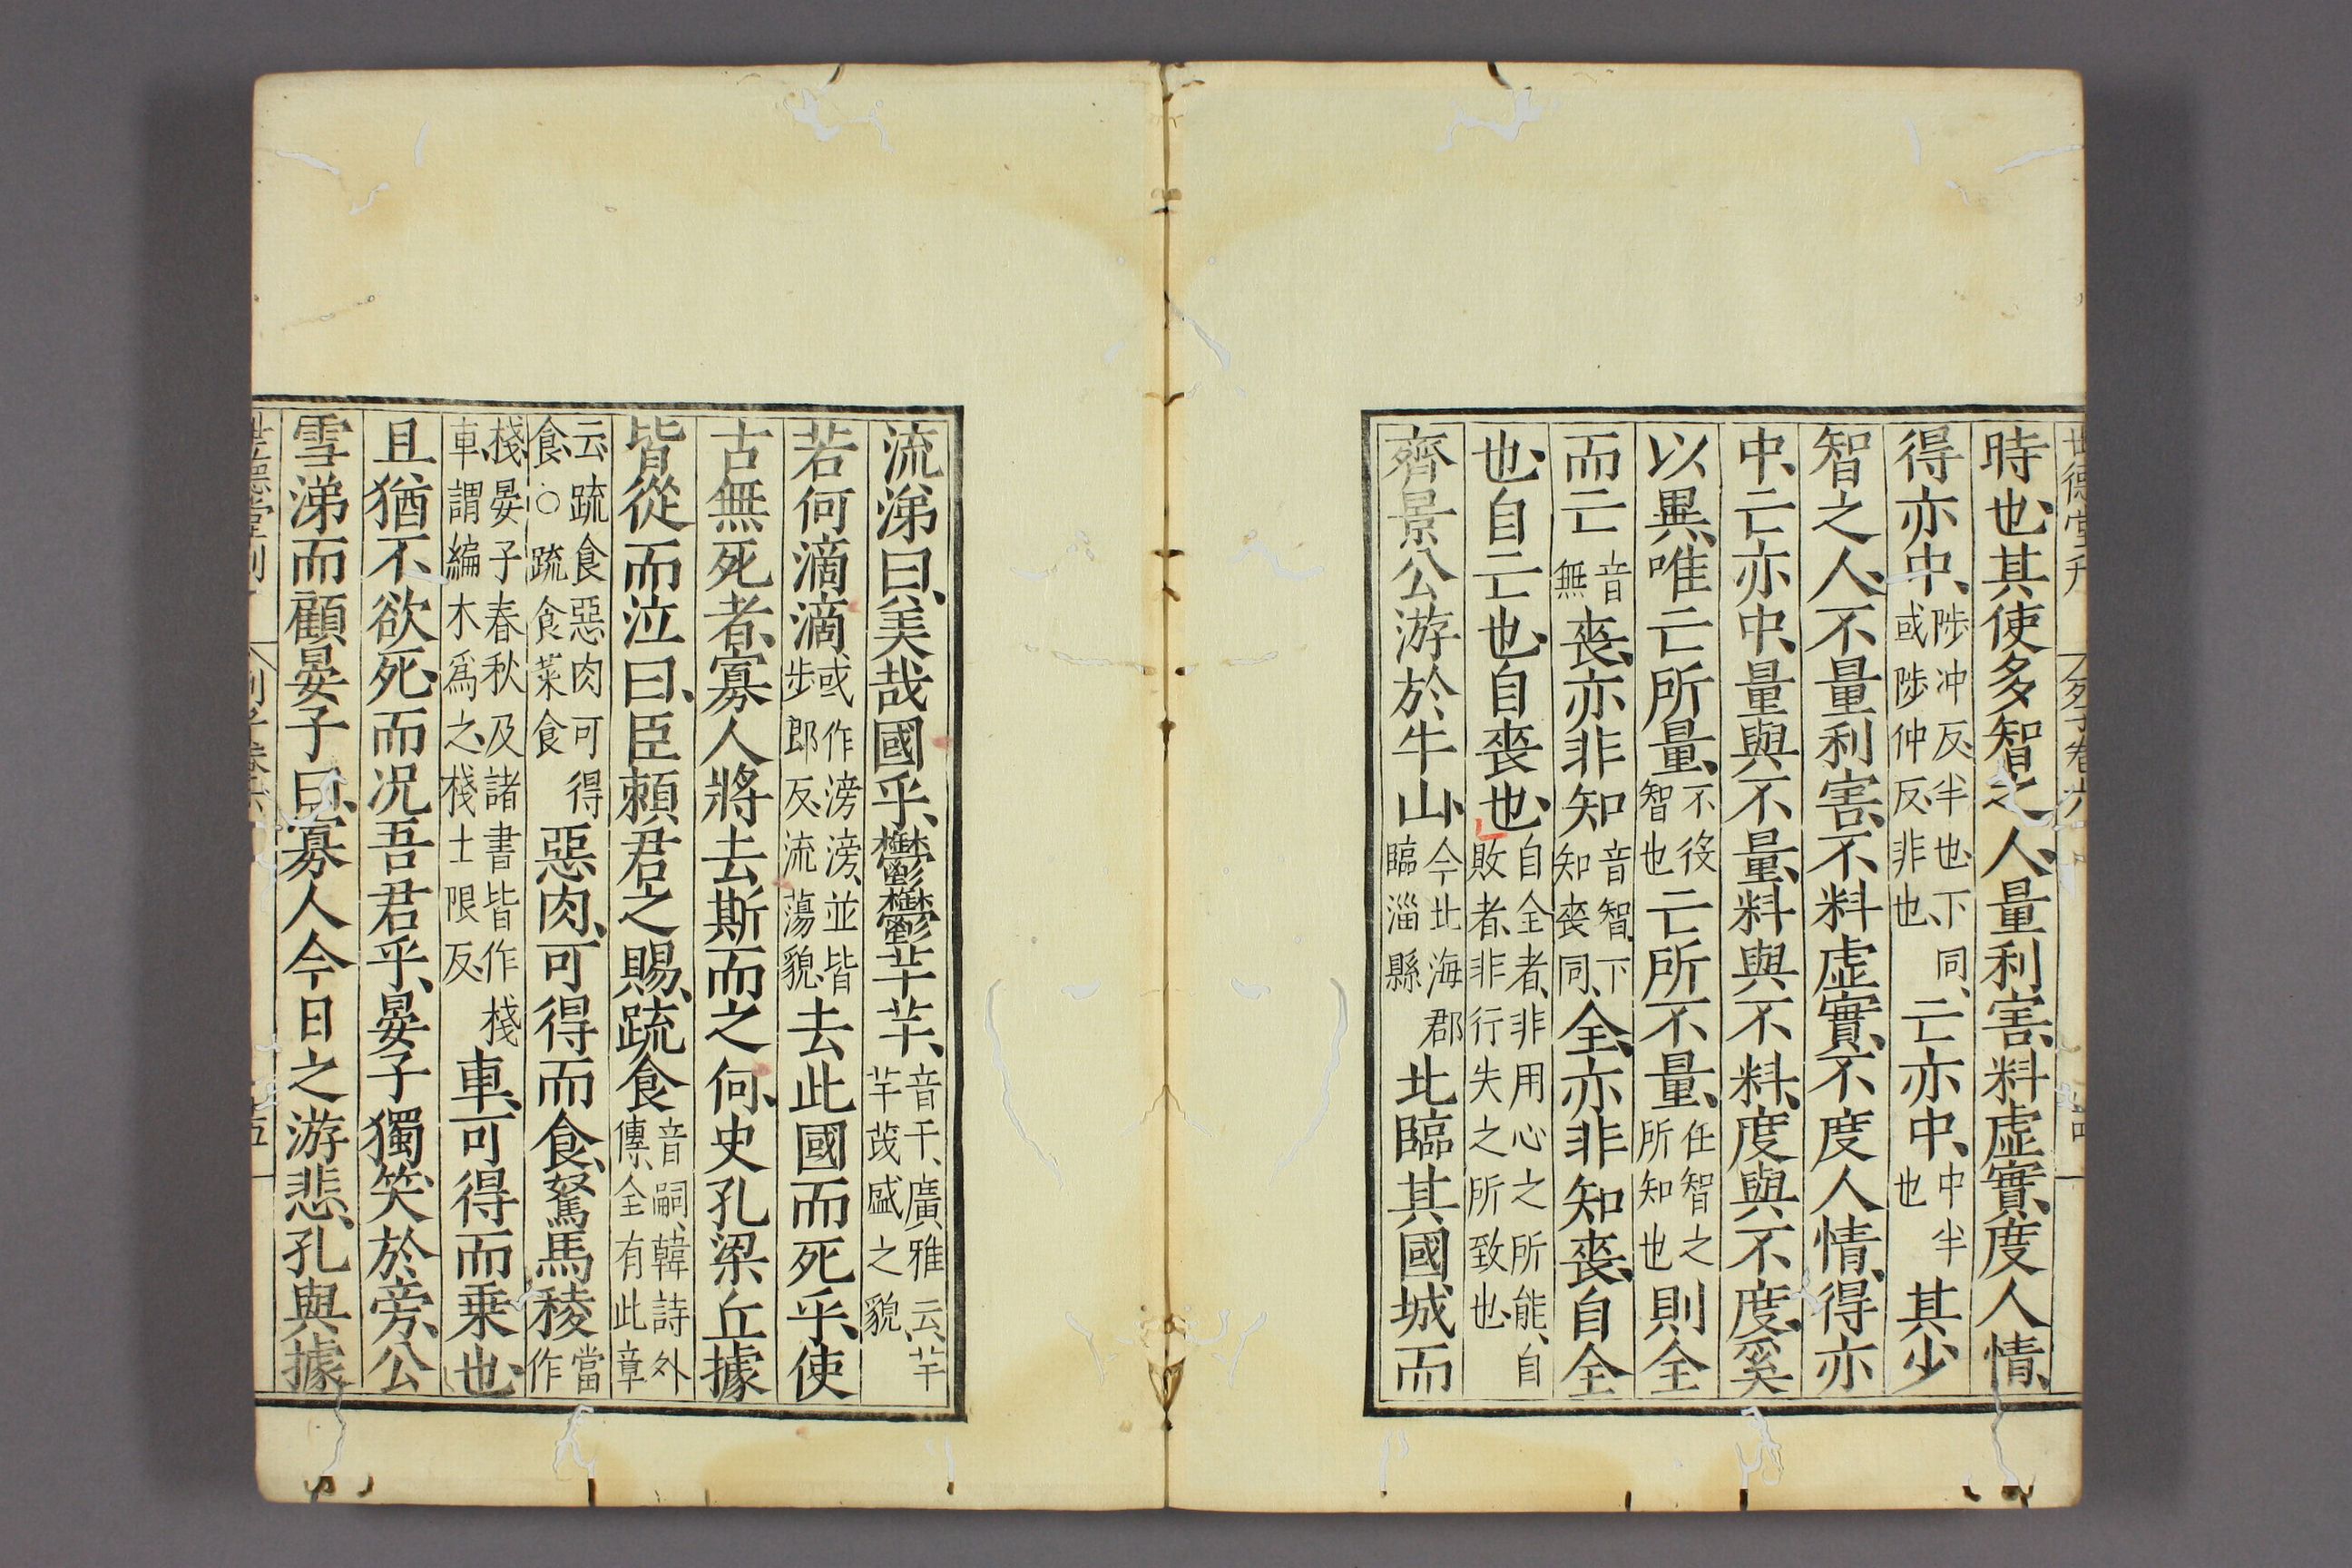 時也、其使多智之人、量利害、料虛實、度人情、
得亦中、陟冲反、半也、下同、或陟仲反、非也、亡亦中、中半也其少
智之人、不量利害、不料虛實、不度人情、得亦
中、亡亦中、量與不量、料與不料、度與不度、奚
以異、唯亡所量、不役智也亡所不量、任智之所知也則全
而亡音無喪、亦非知音智、下知喪同、全、亦非知喪、自全
也、自亡也、自喪也、自全者、非用心之所能、自敗者、非行失之所致也、
齊景公游於牛山、今北海郡臨淄縣北臨其國城而
流涕曰、美哉國乎、鬱鬱芊芊、音千、廣雅云、芊芊茂盛之貌、
若何滴滴或作滂滂、並皆步郎反、流蕩貌、去此國而死乎、使
古無死者、寡人將去斯而之何、史孔梁丘據
皆從而泣曰、臣賴君之賜、疏食音嗣、韓詩外傳、全有此章
云疏食惡肉可得食、○疏食菜食惡肉、可得而食、駑馬稜當作
棧、晏子春秋及諸書皆作棧車、謂編木爲之、棧士限反、車、可得而乗也、
且猶不欲死、而况吾君乎、晏子獨笑於旁、公
雪涕而顧晏子曰、寡人今日之游悲、孔與據